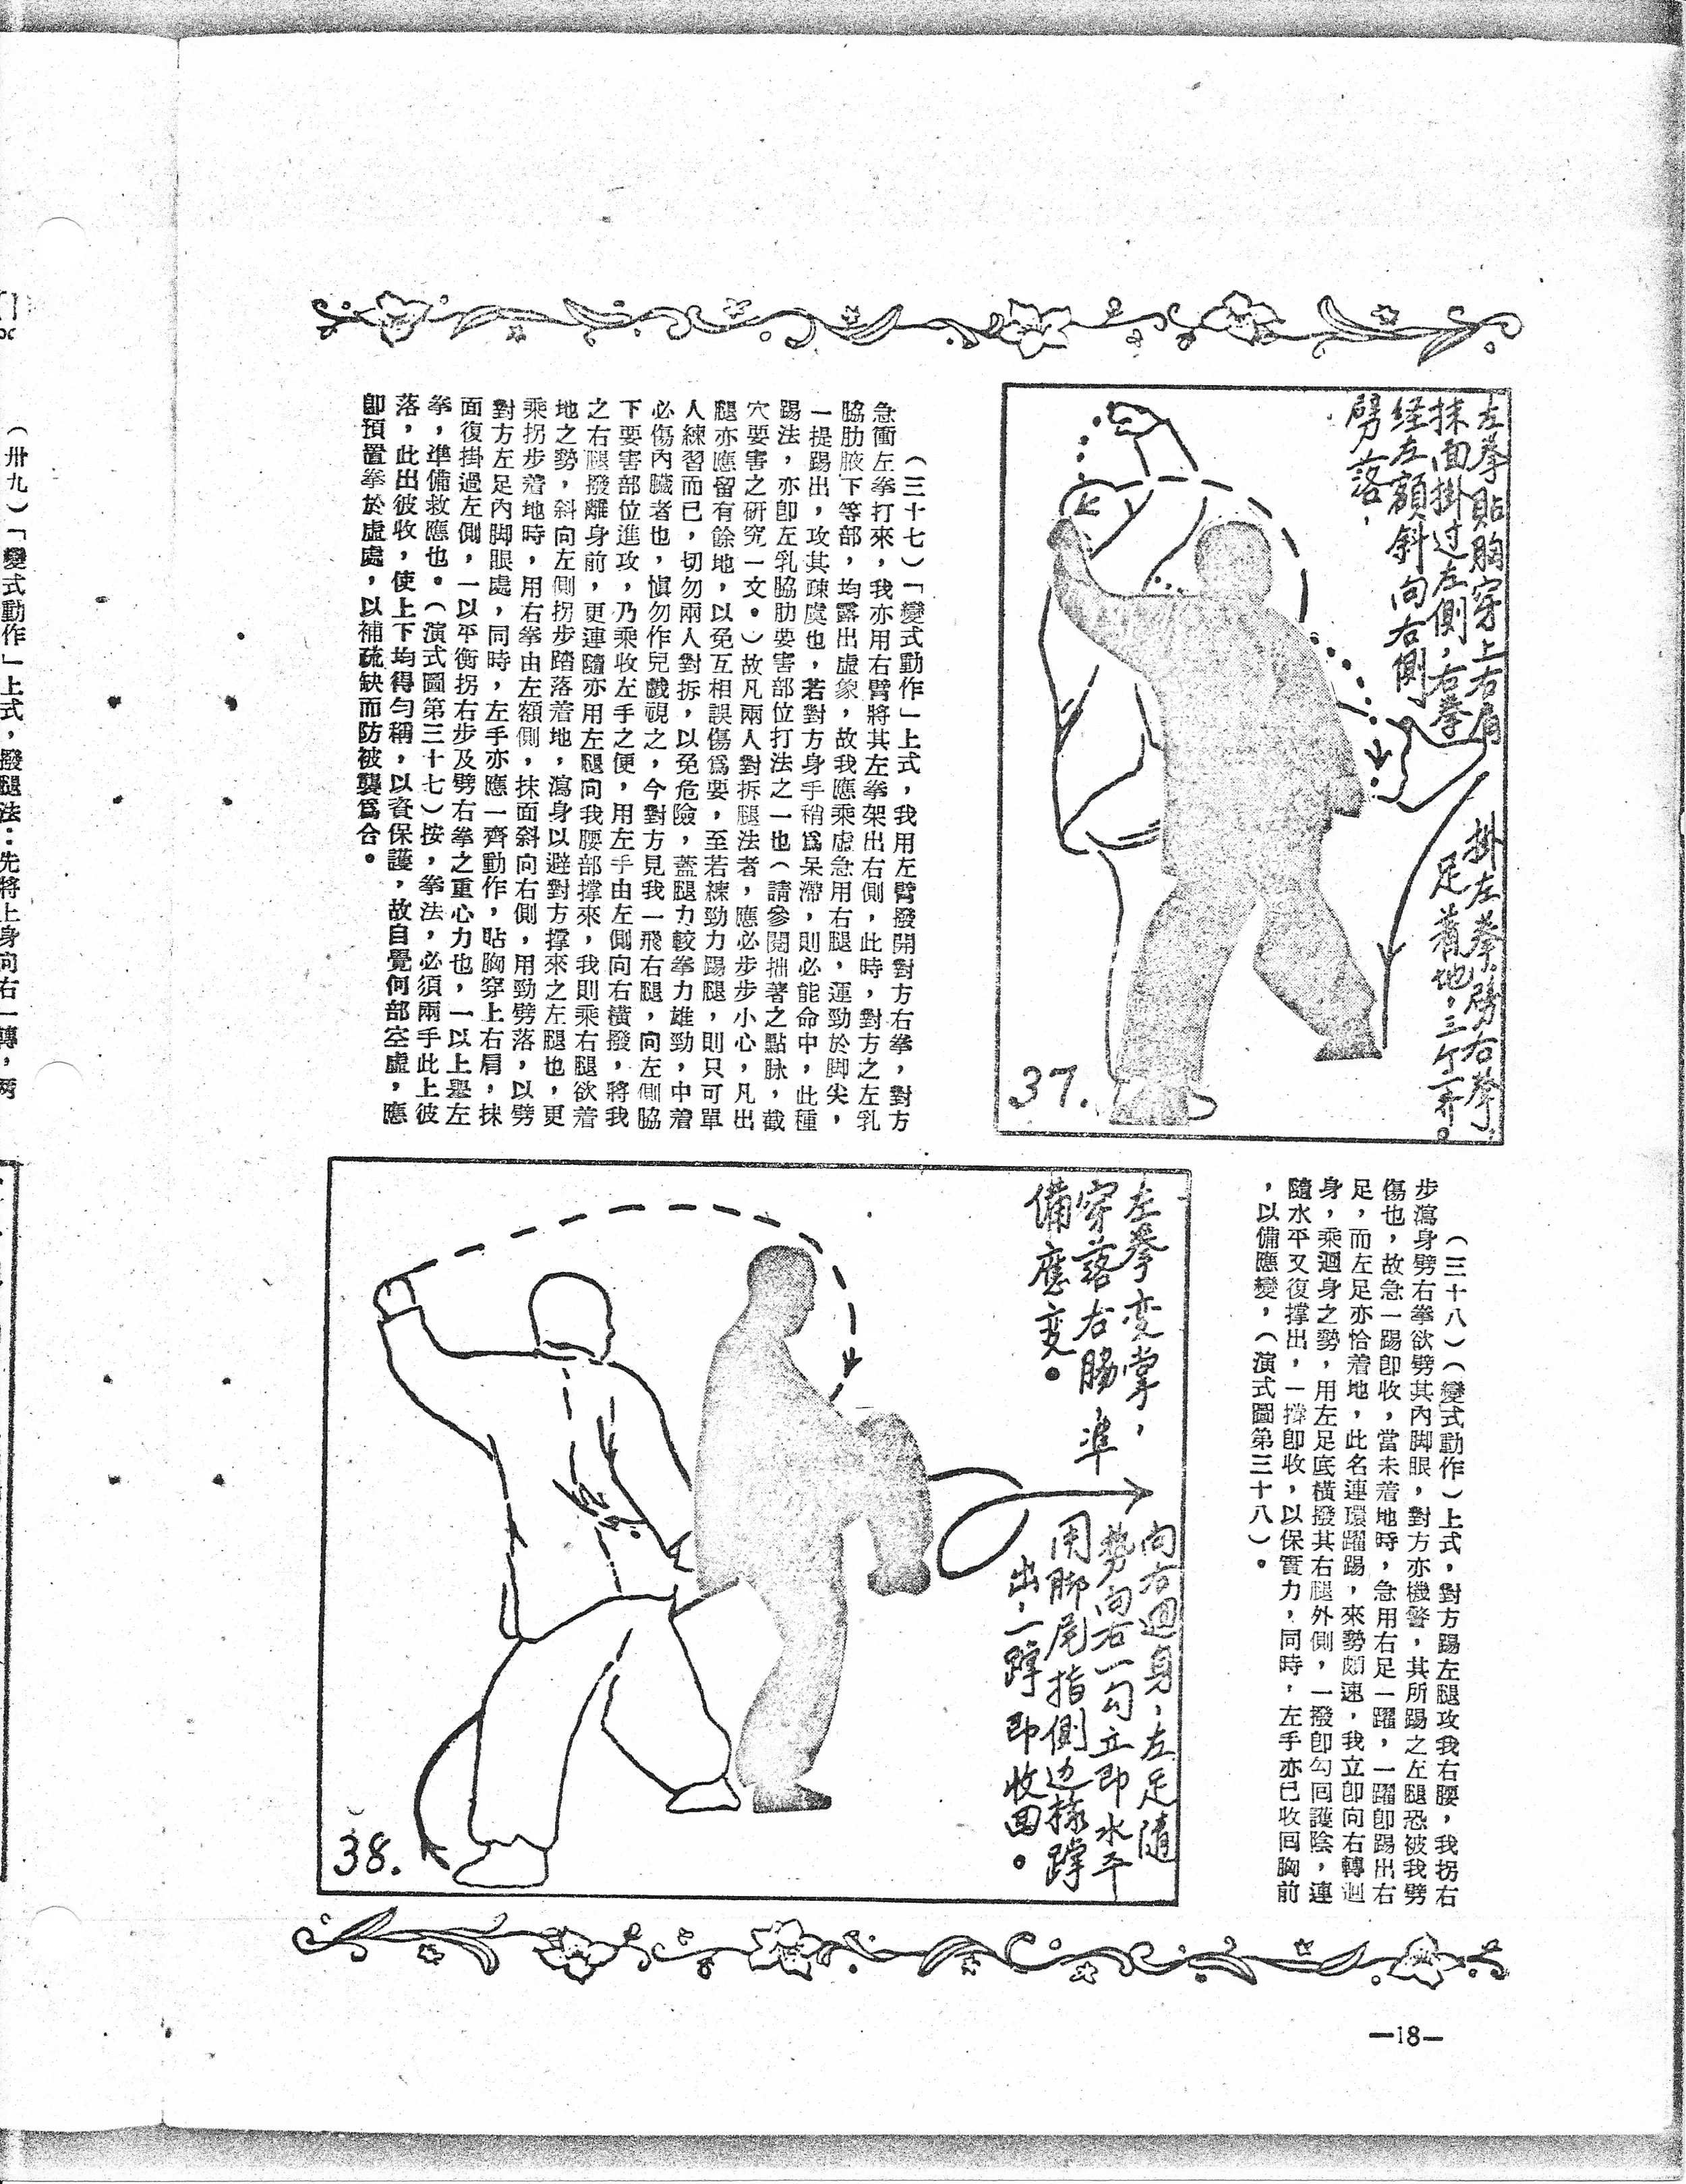 左拳貼胸穿上右肩
抹面掛过左側,右拳
経左額斜向右側
劈落,
掛左拳,劈右拳,
足着地,三个一齊。
37.
(三十七)「變式動作」上式,我用左臂撥開對方右拳,對方
急衝左拳打來,我亦用右臂將其左拳架出右側,此時,對方之左乳
脇肋腋下等部,均露出虛象,故我應乘虛急用右腿,運勁於脚尖,
一提踢出,攻其疎虞也,若對方身手稍爲呆滯,則必能命中,此種
踢法,亦卽左乳脇肋要害部位打法之一也(請參閱拙著之點脉,截
穴要害之研究一文。)故凡兩人對拆腿法者,應必步步小心,凡出
腿亦應留有餘地,以免互相誤傷爲要,至若練勁力踢腿,則只可單
人練習而已,切勿兩人對拆,以免危險,蓋腿力較拳力雄勁,中着
必傷內臟者也,愼勿作兒戲視之,今對方見我一飛右腿,向左側脇
下要害部位進攻,乃乘收左手之便,用左手由左側向右橫撥,將我
之右腿撥離身前,更連隨亦用左腿向我腰部撑來,我則乘右腿欲着
地之勢,斜向左側拐步踏落着地,瀉身以避對方撑來之左腿也,更
乘拐步着地時,用右拳由左額側,抹面斜向右側,用勁劈落,以劈
對方左足內脚眼處,同時,左手亦應一齊動作,貼胸穿上右肩,抹
面復掛過左側,一以平衡拐右步及劈右拳之重心力也,一以上舉左
拳,準備救應也。(演式圖第三十七)按,拳法,必須兩手此上彼
落,此出彼收,使上下均得勻稱,以資保護,故自覺何部空虛,應
卽預置拳於虛處,以補疏缺而防被襲爲合。
(三十八)(變式動作)上式,對方踢左腿攻我右腰,我拐右
步瀉身劈右拳欲劈其內脚眼,對方亦機警,其所踢之左腿恐被我劈
傷也,故急一踢卽收,當未着地時,急用右足一躍,一躍卽踢出右
足,而左足亦恰着地,此名連環躍踢,來勢頗速,我立卽向右轉迴
身,乘迴身之勢,用左足底橫撥其右腿外側,一撥卽勾回護陰,連
隨水平又復撑出,一撑卽收,以保實力,同時,左手亦已收回胸前
,以備應變,(演式圖第三十八)。
左拳变掌,
穿落右腸 準
備應变。
向右迴身,左足隨
勢向右一勾立即水平
用脚尾指側边橫蹲
出,一蹲即收回。
38.
—18—
(卅九)「變式動作」上式,撥腿法:先將上身向右一轉,两